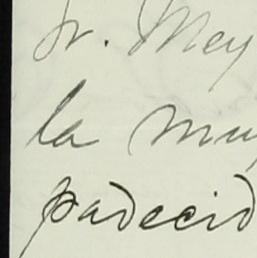 Sr. Mey
la muy
padecid